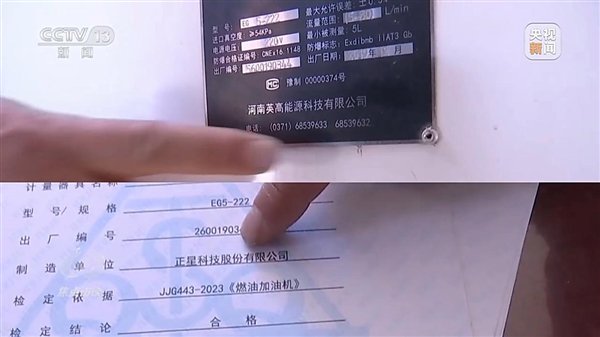 CCTV 13
新闻
央视
新闻
型号: EG 5-222
最大允许误差: ±0.3%
进口真空度: ≥54KPa
流量范围: L/min
电源电压: 220V
最小被测量: 5L
防爆合格证编号: CNEx16.1148
防爆标志: Exdibmb IIAT3 Gb
出厂编号: 5600190344
出厂日期:
MC 豫制 00000374号
河南英高能源科技有限公司
电话: (0371) 68539633 68539632
计量器具名称
型号/规格 EG5-222
出厂编号 26001903
制造单位 正星科技股份有限公司
检定依据 JJG443-2023《燃油加油机》
检定结论 合格